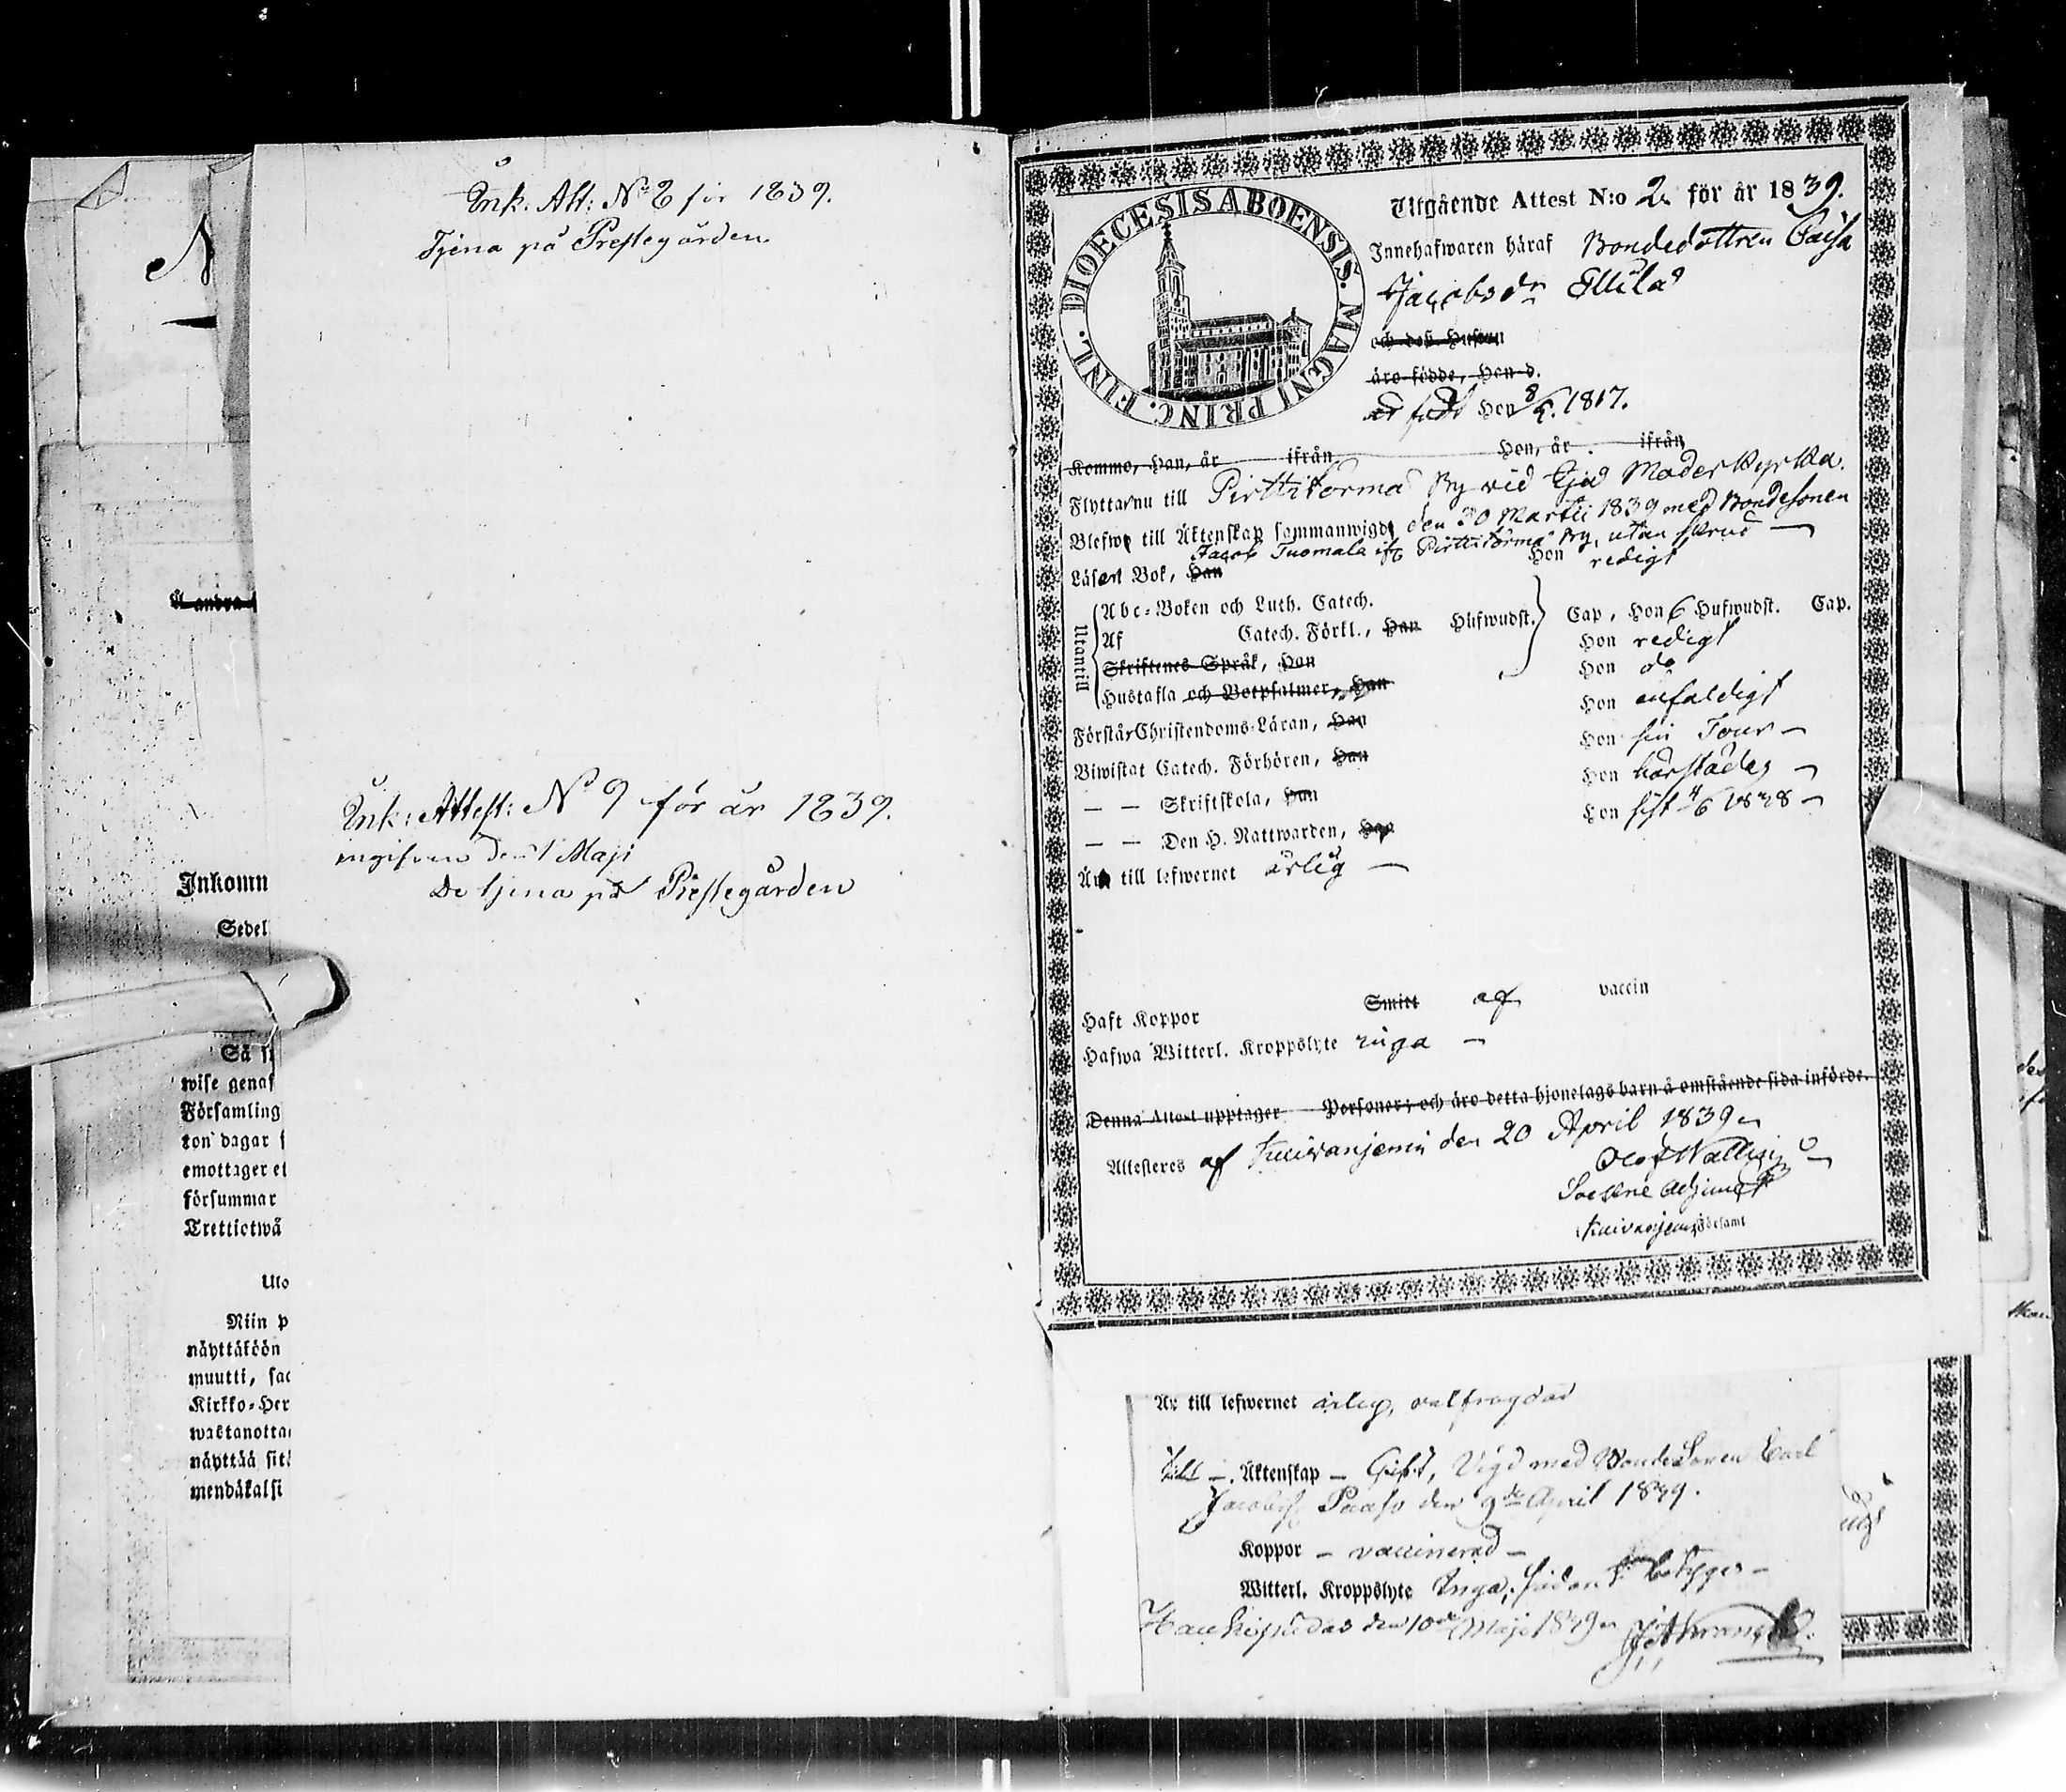 Ink. Att: No 8 för 1839.
Tjena på Prestegården
N
Å andra
Ink: Attest: No 9 för år 1839.
ingifven den 1 Maji
De tjena på Prestegården
Inkomn
Sedel
Så
wise genaf
Församling
ton dagar
emottager et
försummar
Trettiotwå
Uto
Niin p
näyttäköön
muutti, saa
Kirkko-Her
wastanotta
näyttää sitä
mendäkalsi
DIOECESIS ABOENSIS. MAGNI PRINC. FINL.
Utgående Attest N:o 2 för år 1839.
Innehafwaren häraf Bondedottren Caisa
Jacobsdr Ellilä
och des. Hustru
äro födde, Han d.
är född Hon 8/5. 1817.
Komme, Han, år ifrån Hon, år ifrån
Flyttar nu till Pirttitörmä By vid Ijo Moderkyrka.
Blefwo till Äktenskap sammanwigde den 30 Martii 1839 med Bondesonen
Jacob Tuomala ifr. Pirttitörmä By, utan skrud
Läsert Bok, Han Hon redigt
Utantill
Abc-Boken och Luth. Catech.
Af Catech. Förkl., Han Hufwudst. Cap, Hon 6 Hufwudst. Cap.
Skriftenes Språk, Han Hon redigt
Hustafla och Botpsalmer, Han Hon do
Förstår Christendoms-Läran, Han Hon enfaldigt
Biwistat Catech. Förhören, Han Hon sin Tour
— — Skriftskola, Han Hon härstädes
— — Den H. Nattwarden, Han Hon sist 4/6 1838
Är till lefwernet ärlig
Haft Koppor Smitt af vaccin
Hafwa Witterl. Kroppslyte inga
Denna Attest upptager Personer; och äro detta hjonelags barn å omstående sida införde.
Attesteres af Kuivaniemi den 20 April 1839
Olof Wallin
Sockne Adjunct
Kuivaniemi Församl
Är till lefwernet ärlig, välfrägdad
till Äktenskap — Gift, Vigd med Bondesonen Carl
Jacobss. Paaso den 9de April 1839.
Koppor — vaccinerad —
Witterl. Kroppslyte Inga, sådant betygas —
Haukipudas den 10de Maji 1839